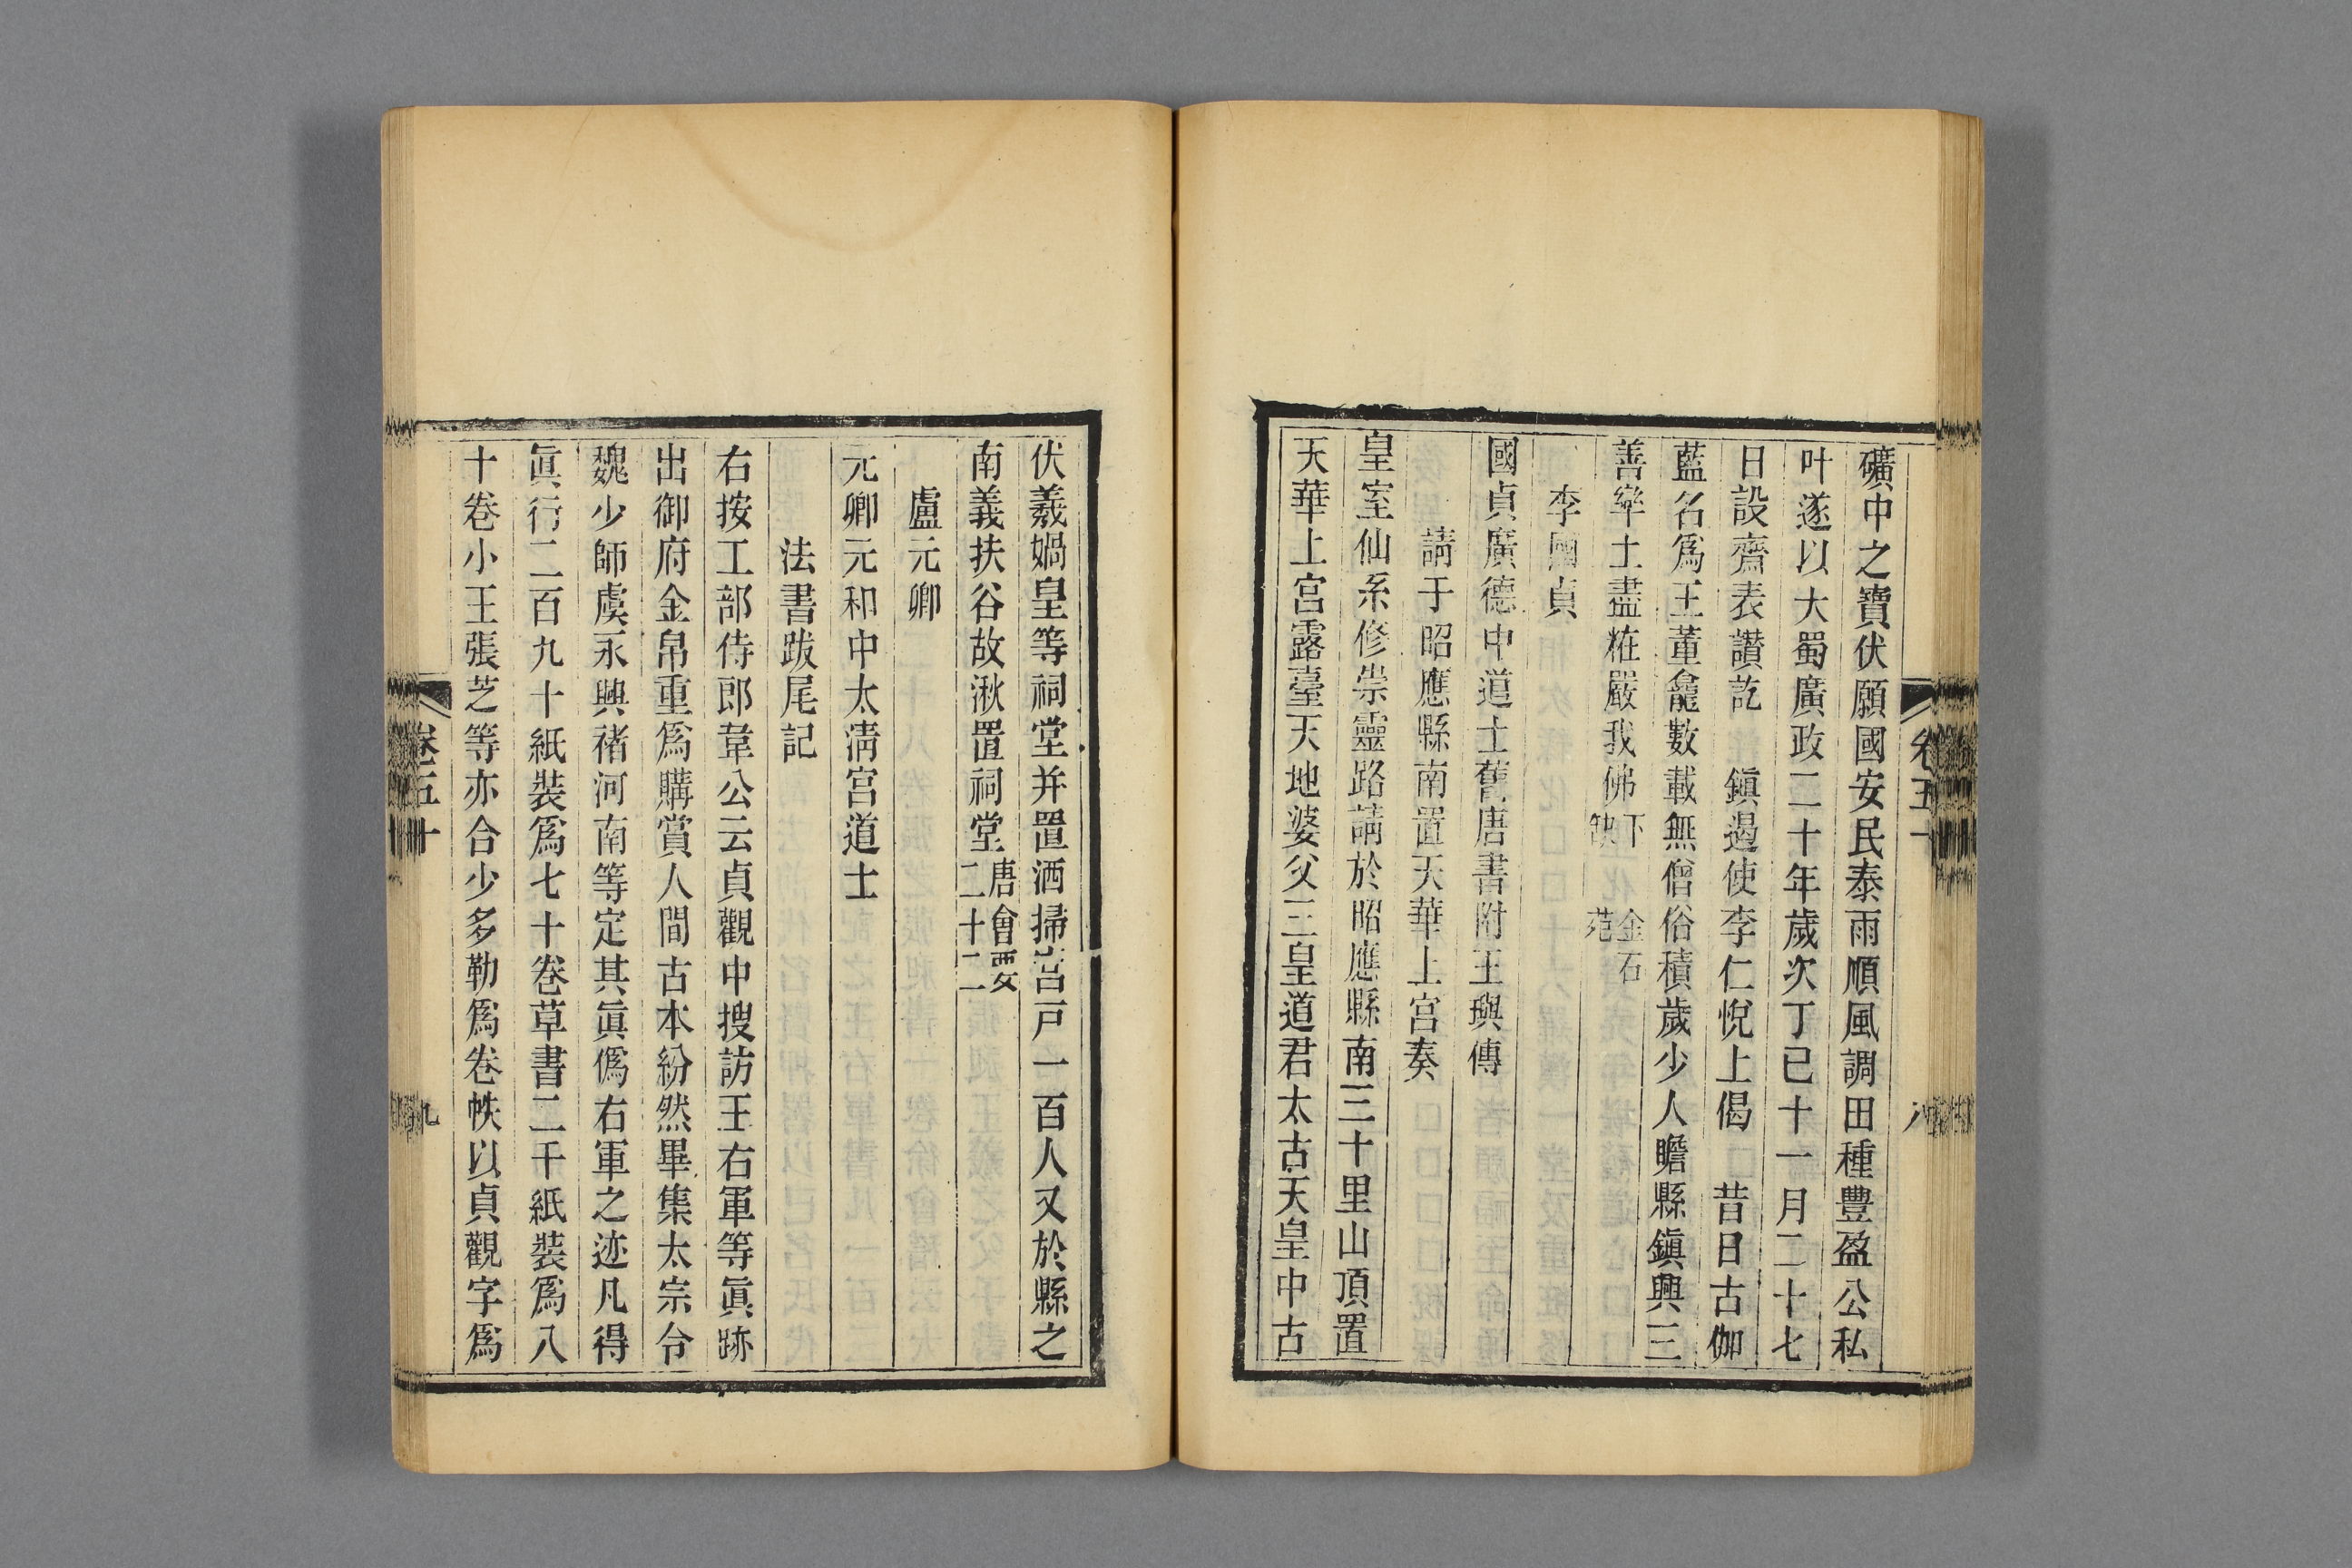 礦中之寶伏願國安民泰雨順風調田種豐盈公私
叶遂以大蜀廣政二十年歲次丁巳十一月二十七
日設齋表讃訖　鎮遏使李仁悅上偈　昔日古伽
藍名爲王董龕數載無僧俗積歲少人瞻縣鎭興三
善牽土盡粧嚴我佛下缺　金石苑
李國貞
國貞廣德中道士舊唐書附王璵傳
請于昭應縣南置天華上宮奏
皇室仙系修崇靈路請於昭應縣南三十里山頂置
天華上宮露臺天地婆父三皇道君太古天皇中古
卷五十
八
伏羲媧皇等祠堂并置洒掃宮戸一百人又於縣之
南義扶谷故湫置祠堂唐會要二十二
盧元卿
元卿元和中太淸宮道士
法書跋尾記
右按工部侍郎韋公云貞觀中搜訪王右軍等眞跡
出御府金帛重爲購賞人間古本紛然畢集太宗令
魏少師虞永興褚河南等定其眞僞右軍之迹凡得
眞行二百九十紙裝爲七十卷草書二千紙裝爲八
十卷小王張芝等亦合少多勒爲卷帙以貞觀字爲
卷五十
九